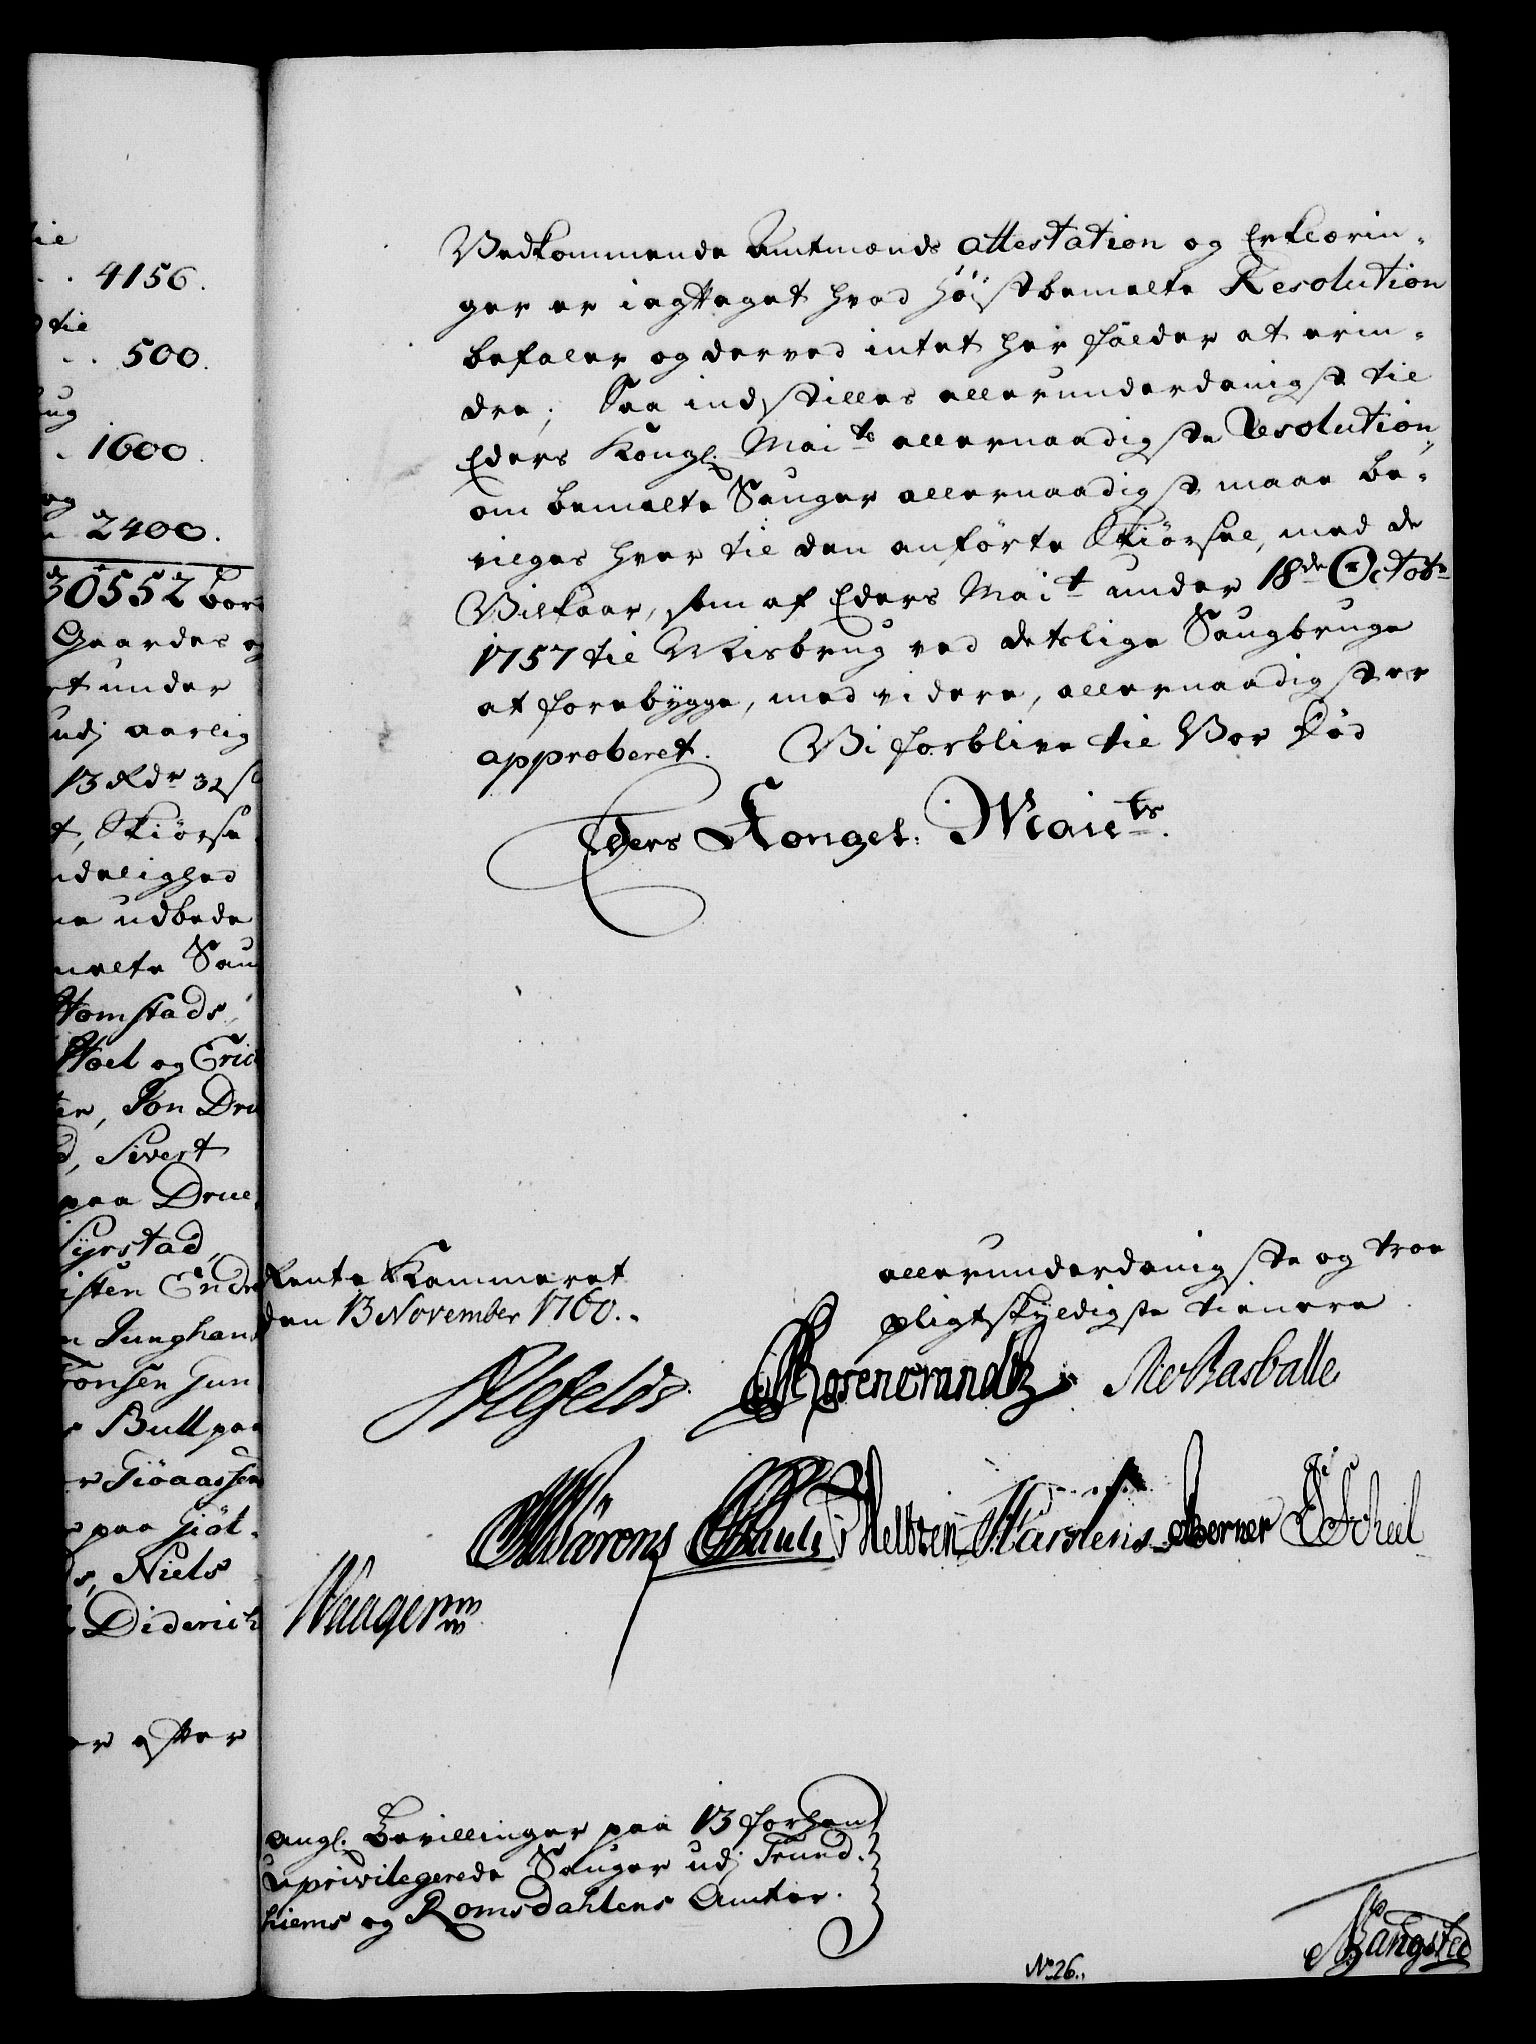 tie
4156.
til
500.
ug
1600.
og
2400.
30552 bor
Gaardes og
et under
udj aarlig
13 Rdr 32 s
t, Skiørse
ndelighed
ne udbede
melte Sau
Homstads,
Hoel og Eric
er, Jon Dru
d, Sivert
paa Drue
Syrstad,
isten Endre
n Junghans
Tonsen Gun
s Bull paa
er Giøaassen
s paa Giøl-
ds, Niels
Diderich
er efter
Vedkommende Amtmænds attestation og Erklærin-
ger er iagttaget hvad høistbemelte Resolution
befaler og derved intet her falder at erin-
dre; Saa indstilles allerunderdanigst til
Eders Kongl. Maits allernaadigste Resolution,
om bemelte Sauger allernaadigst maae be-
vilges hver til den anførte Skiørsel, med de
Vilkaar, som af Eders Mait under 18de Octobr
1757 til Misbrug ved detslige Saugbruge
at forebygge, med videre, allernaadigst er
approberet. Vi forblive til Vor Død
Eders Kongel: Maits.
Rente Kammeret
den 13 November 1760.
allerunderdanigste og troe
pligtskyldigste tienere
Ahlefeldt. Rosencrandtz MvBasballe
Wärens Pauli Meltzen Marstens Berner Scheel
Waagenm
angl. Bevillinger paa 13 forhen
uprivilegerede Sauger udj Trund-
hiems og Romsdahlens Amter.
No 26.
Bangsted